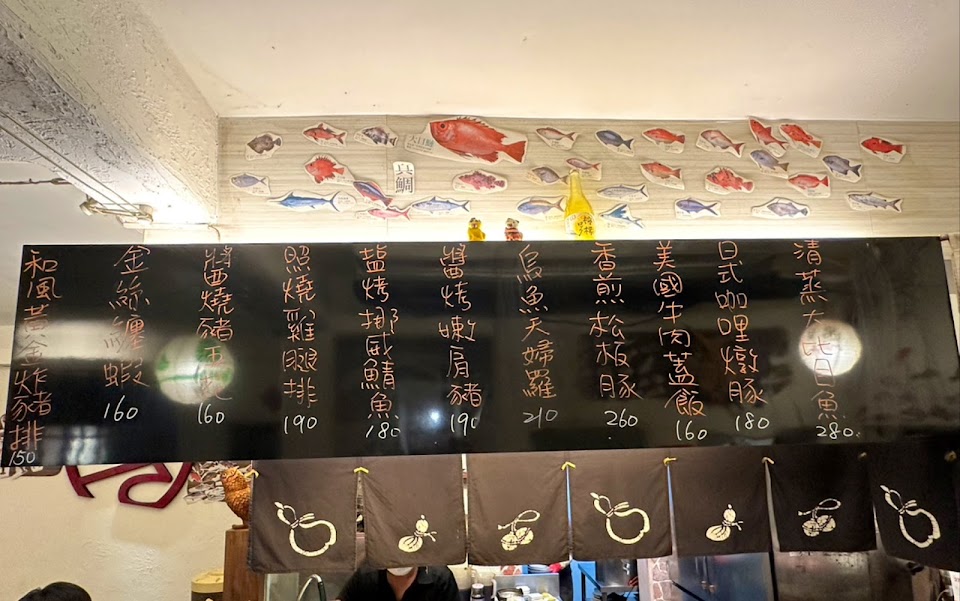 真鯛
清蒸大比目魚
280
日式咖哩燉豚
180
美國牛肉蓋飯
160
香煎松板豚
260
烏魚天婦羅
210
醬烤嫩肩豬
190
鹽烤挪威鯖魚
180
照燒雞腿排
190
醬燒豬
160
金絲纏蝦
160
和風黃金炸豬排
150